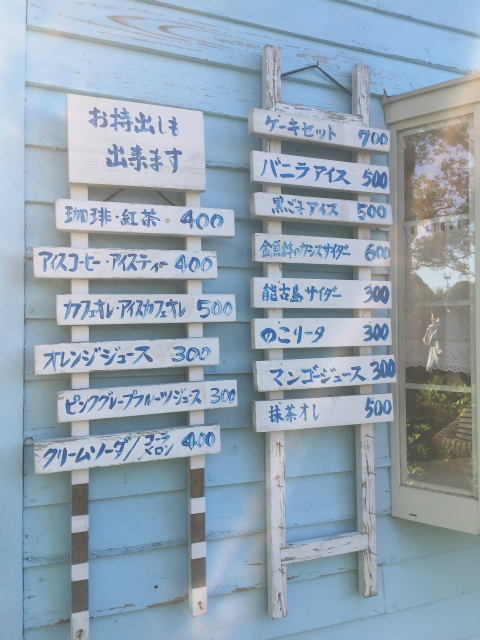 お持出しも
出来ます
珈琲・紅茶・ 400
アイスコーヒー・アイスティー 400
カフェオレ・アイスカフェオレ 500
オレンジジュース 300
ピンクグレープフルーツジュース 300
クリームソーダ/コーラ メロン 400
ケーキセット 700
バニラアイス 500
黒ごまアイス 500
金魚鉢のクンズサイダー 600
能古島サイダー 300
のこリータ 300
マンゴージュース 300
抹茶オレ 500